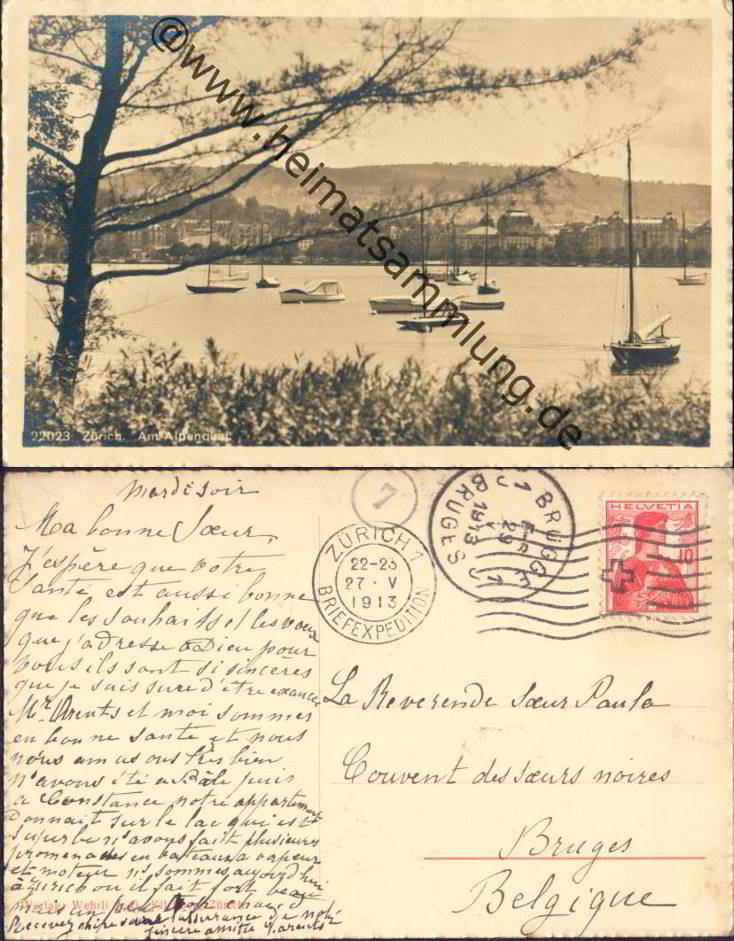 @www.heimatsammlung.de
22023 Zürich. Am Alpenquai
Mardi soir
Ma bonne Sœur,
J'espère que votre
santé est aussi bonne
que les souhaits et les vœux
que j'adresse à Dieu pour
vous ils sont si sincères
que je suis sure d'être exaucée
Mr Arents et moi sommes
en bonne santé et nous
nous amusons très bien
n'avons été a Bâle puis
a Constance notre appartement
Donnait sur le lac qui est
superbe n's avons fait plusieurs
promenades en bateaux a vapeur
et moteur n's sommes aujourd'hui
à Zurich ou il fait fort beau
Recevez chère sœur l'assurance de notre
sincère amitié
Verlag: Wehrli Kilchberg Zürich
7
ZÜRICH 1
22-23
27. V
1913
BRIEFEXPEDITION
BRUGGE
29
1913
BRUGES
HELVETIA
10
La Reverende Sœur Paula
Couvent des sœurs noires
Bruges
Belgique